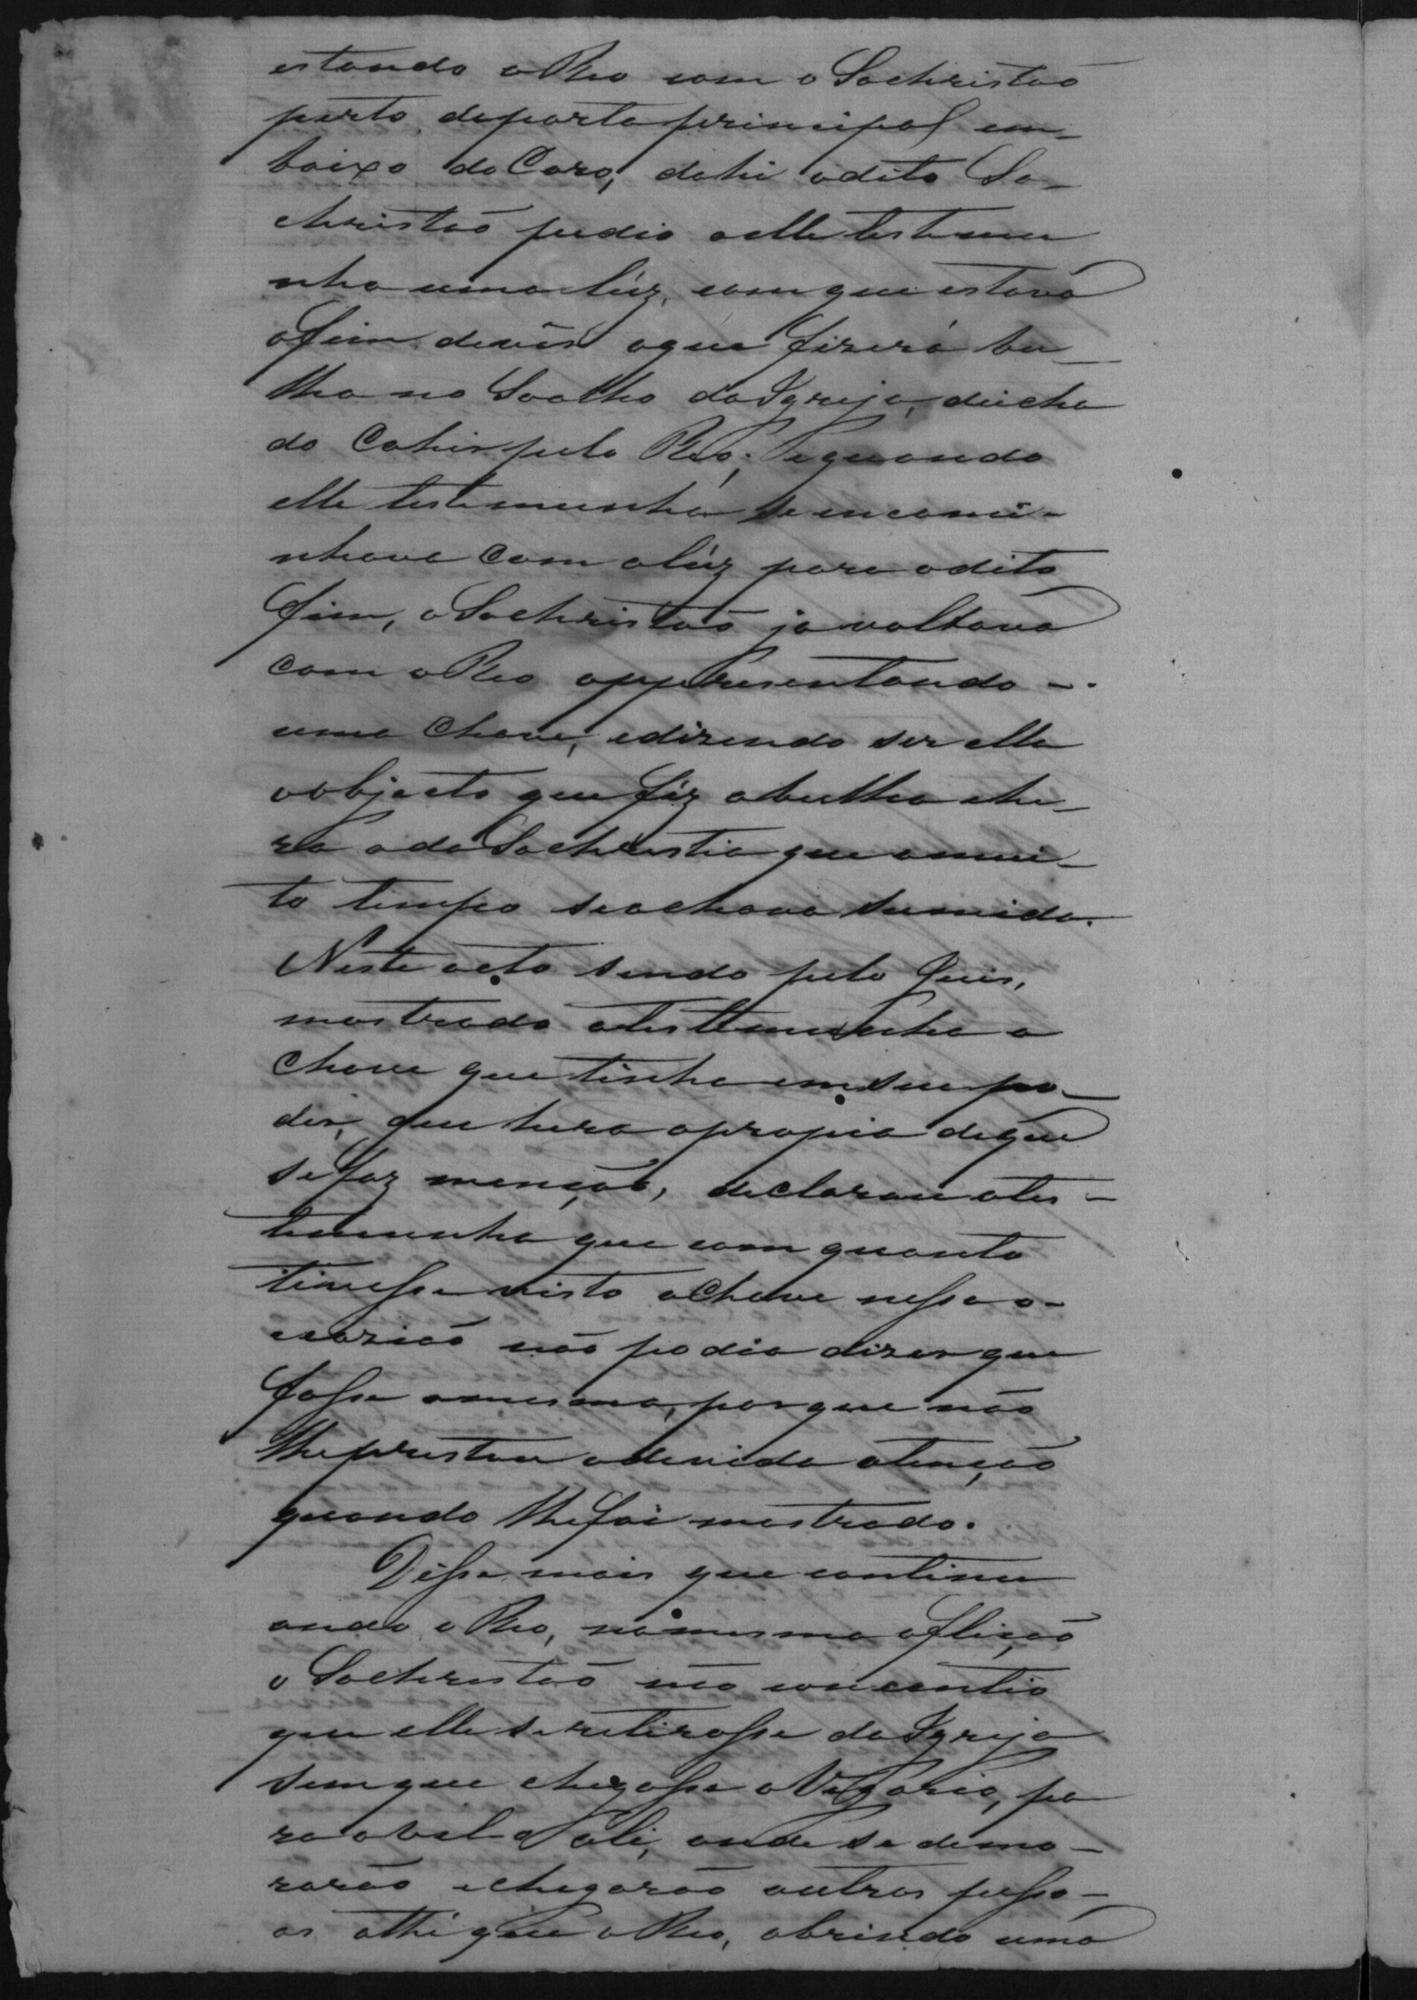 estando o Reo com o Sachristão
perto da porta principal em-
baixo do Coro, dahi o dito Sa-
christão pedio a elle testemu
nha uma lúz, com que estava
afim de vêr o que fizera bu-
lha no Soalho da Igreja, deicha
do Cahir pelo Reo; e quando
elle testemunha se encami-
nhava com a lúz para o dito
fim, o Sachristão ja voltava
com o Reo appresentando -.
uma Chave, e dizendo ser ella
o objecto que fêz a bulha e he-
ra a da Sachristia que a mui-
to tempo se achava sumida.
Neste acto sendo pelo Juis,
mostrado a testemunha a
Chave que tinha em seu po-
der, que hera a propia de que
se faz menção, declarou a tes-
temunha que com quanto
tivesse visto a Chave nessa o-
casião não podia dizer que
fosse a mesma, porque não
lhe prestou a devida atenção
quando lhe foi mostrado.
Disse mais que continu
ando o Reo, na mesma aflição
o Sachristão não concentio
que elle se retirasse da Igreja
sem que chegasse o Vigario, pa
ra o val ali, onde se demo-
rarão e chegarão outras pesso-
as athe que o Reo, abrindo uma